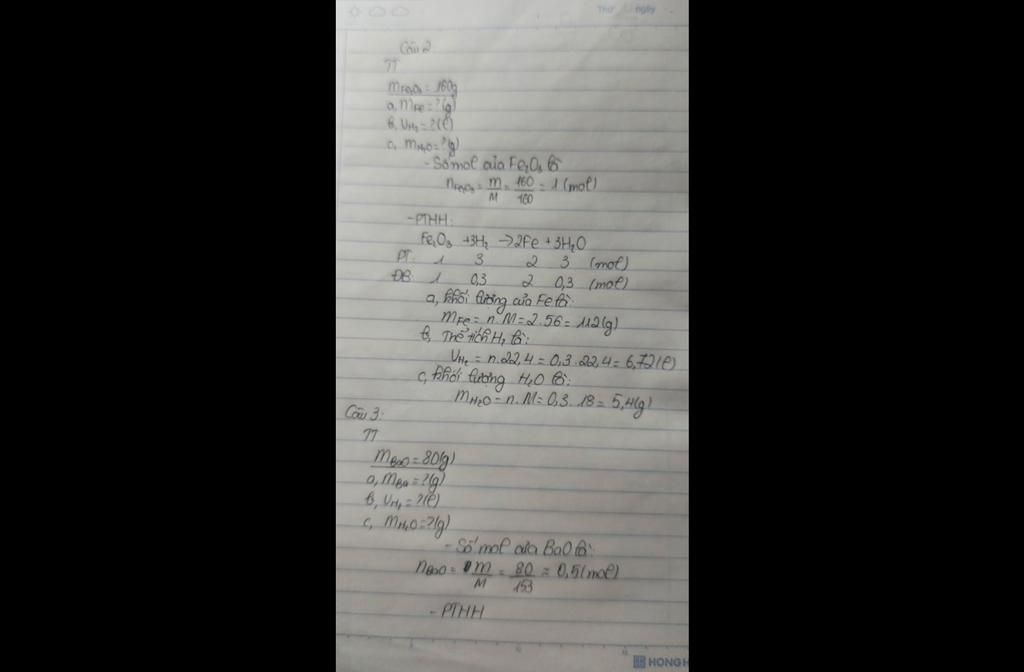 Thứ ngày
Câu 2
TT
mFe₂O₃ = 160g
a, mFe = ? (g)
b, VH₂ = ? (l)
c, mH₂O = ? (g)
- Số mol của Fe₂O₃ là
nFe₂O₃ = m/M = 160/160 = 1 (mol)
- PTHH:
Fe₂O₃ + 3H₂ → 2Fe + 3H₂O
PT: 1 3 2 3 (mol)
ĐB: 1 0,3 2 0,3 (mol)
a, khối lượng của Fe là:
mFe = n.M = 2.56 = 112 (g)
b, Thể tích H₂ là:
VH₂ = n.22,4 = 0,3.22,4 = 6,72 (l)
c, khối lượng H₂O là:
mH₂O = n.M = 0,3.18 = 5,4 (g)
Câu 3:
TT
mBaO = 80 (g)
a, mBa = ? (g)
b, VH₂ = ? (l)
c, mH₂O = ? (g)
- Số mol của BaO là:
nBaO = m/M = 80/153 ≈ 0,5 (mol)
- PTHH
HONG H